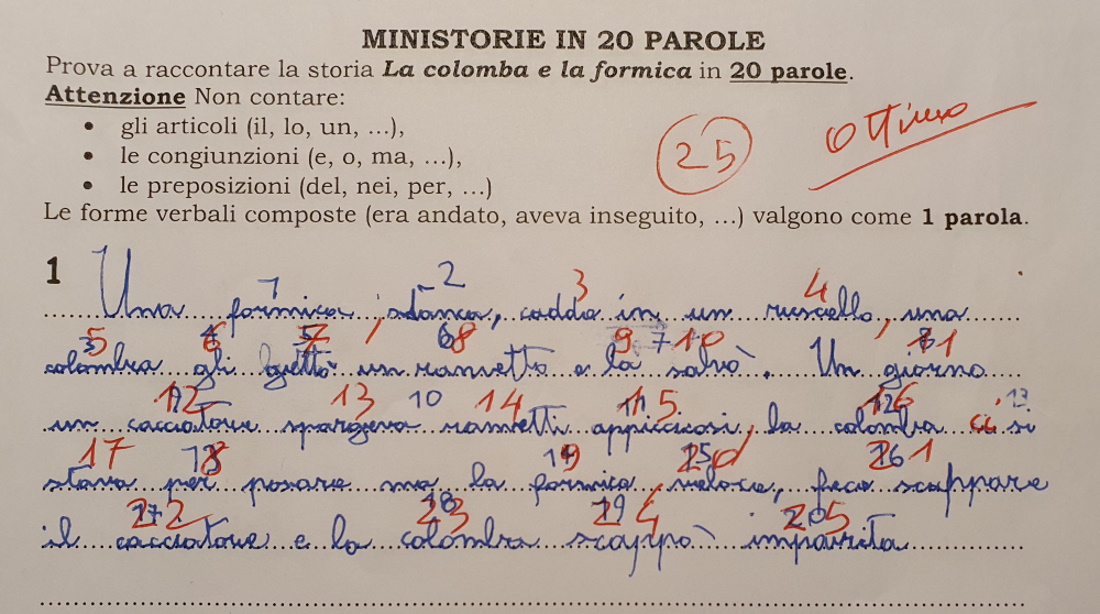 MINISTORIE IN 20 PAROLE
Prova a raccontare la storia La colomba e la formica in 20 parole.
Attenzione Non contare:
• gli articoli (il, lo, un, ...),
• le congiunzioni (e, o, ma, ...),
• le preposizioni (del, nei, per, ...)
25 Ottimo
Le forme verbali composte (era andato, aveva inseguito, ...) valgono come 1 parola.
1 2 3 4
1 Una formica, stanca, cadde in un ruscello, una
5 6 7 8 9 10 11
colomba gli gettò un rametto e la salvò. Un giorno
12 13 10 14 15 16 13
un cacciatore spargeva rametti appiccicosi, la colomba ci si
17 18 19 20 21
stava per posare ma la formica, veloce, fece scappare
22 23 24 25
il cacciatore e la colomba scappò impaurita